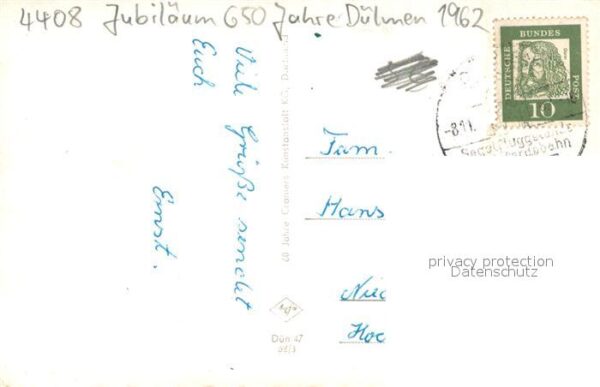 4408 Jubiläum 650 Jahre Dülmen 1962
Viele Grüße sendet
Euch
Ernst.
60 Jahre Cramers Kunstanstalt KG., Dortmund
Dün 47
Fam.
Hans
Hoc
DEUTSCHE
BUNDES
POST
10
-8.11.
privacy protection
Datenschutz